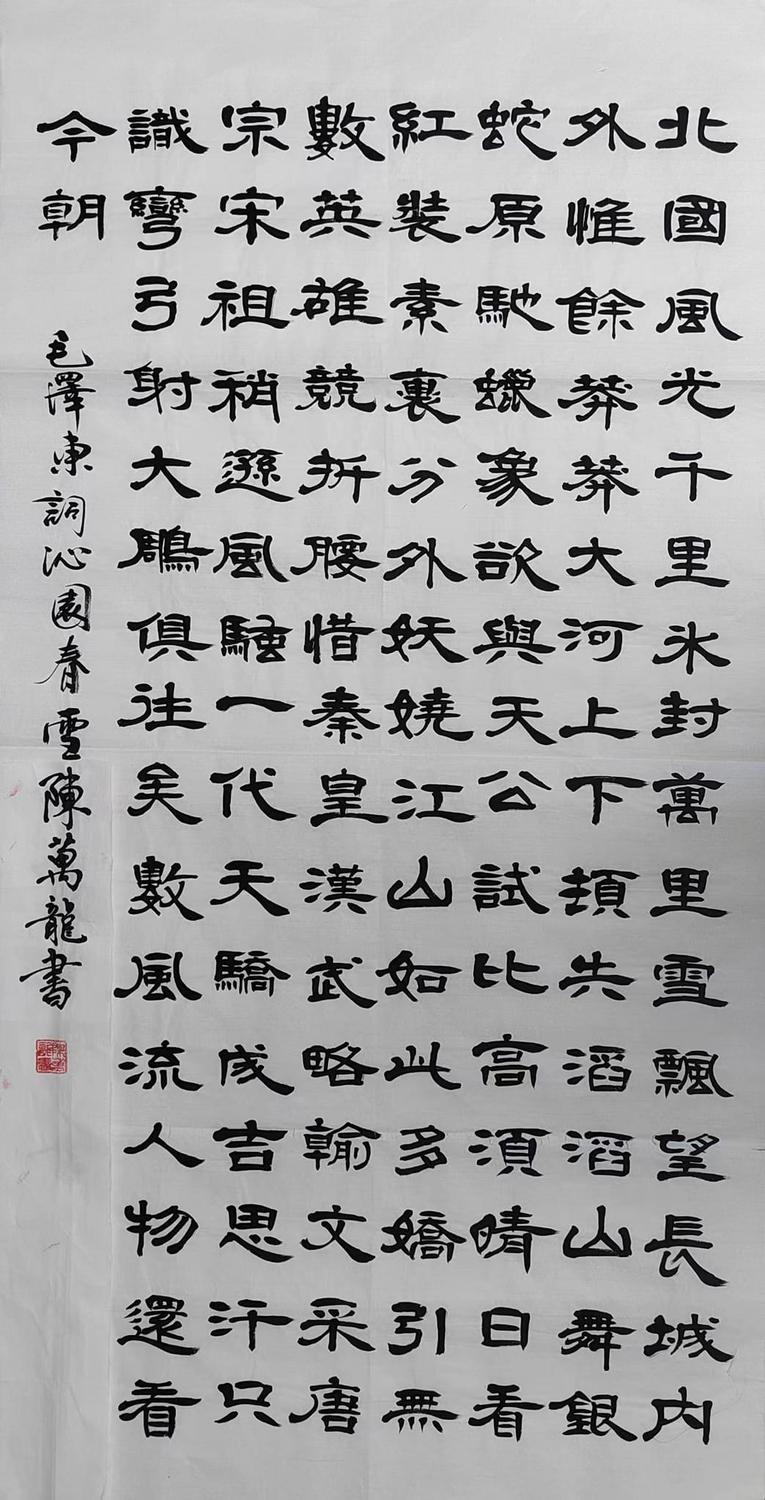 北國風光千里氷封萬里雪飄望長城内
外惟餘莽莽大河上下頓失滔滔山舞銀
蛇原馳蠟象欲與天公試比高須晴日看
紅裝素裹分外妖嬈江山如此多嬌引無
數英雄競折腰惜秦皇漢武略輸文采唐
宗宋祖稍遜風騷一代天驕成吉思汗只
識彎弓射大鵰俱往矣數風流人物還看
今朝
毛澤東詞沁園春雪陳萬龍書